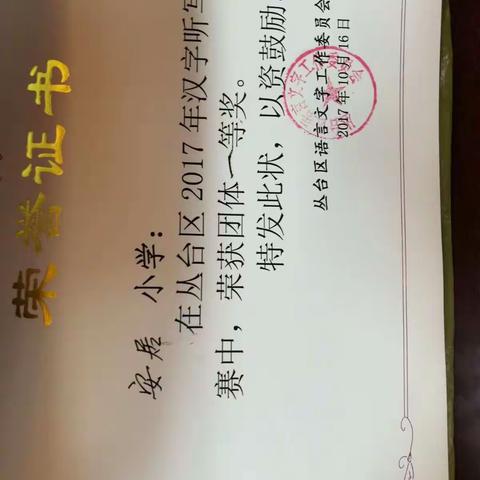 荣誉证书
安居 小学：
在丛台区 2017 年汉字听写
赛中，荣获团体一等奖。
特发此状，以资鼓励
丛台区语言文字工作委员会
2017年10月16日